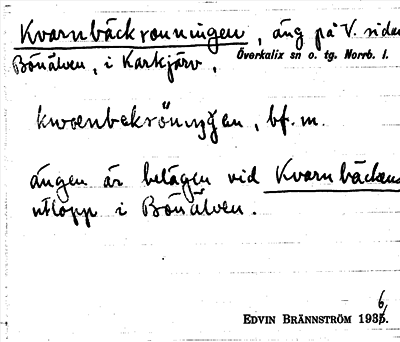 Kvarnbäckronningen, äng på V. sidan
Bönälven, i Karkjärv, Överkalix sn o. tg. Norrb. l.
bf. m.
ängen är belägen vid Kvarnbäckens
utlopp i Bönälven.
EDVIN BRÄNNSTRÖM 1936.